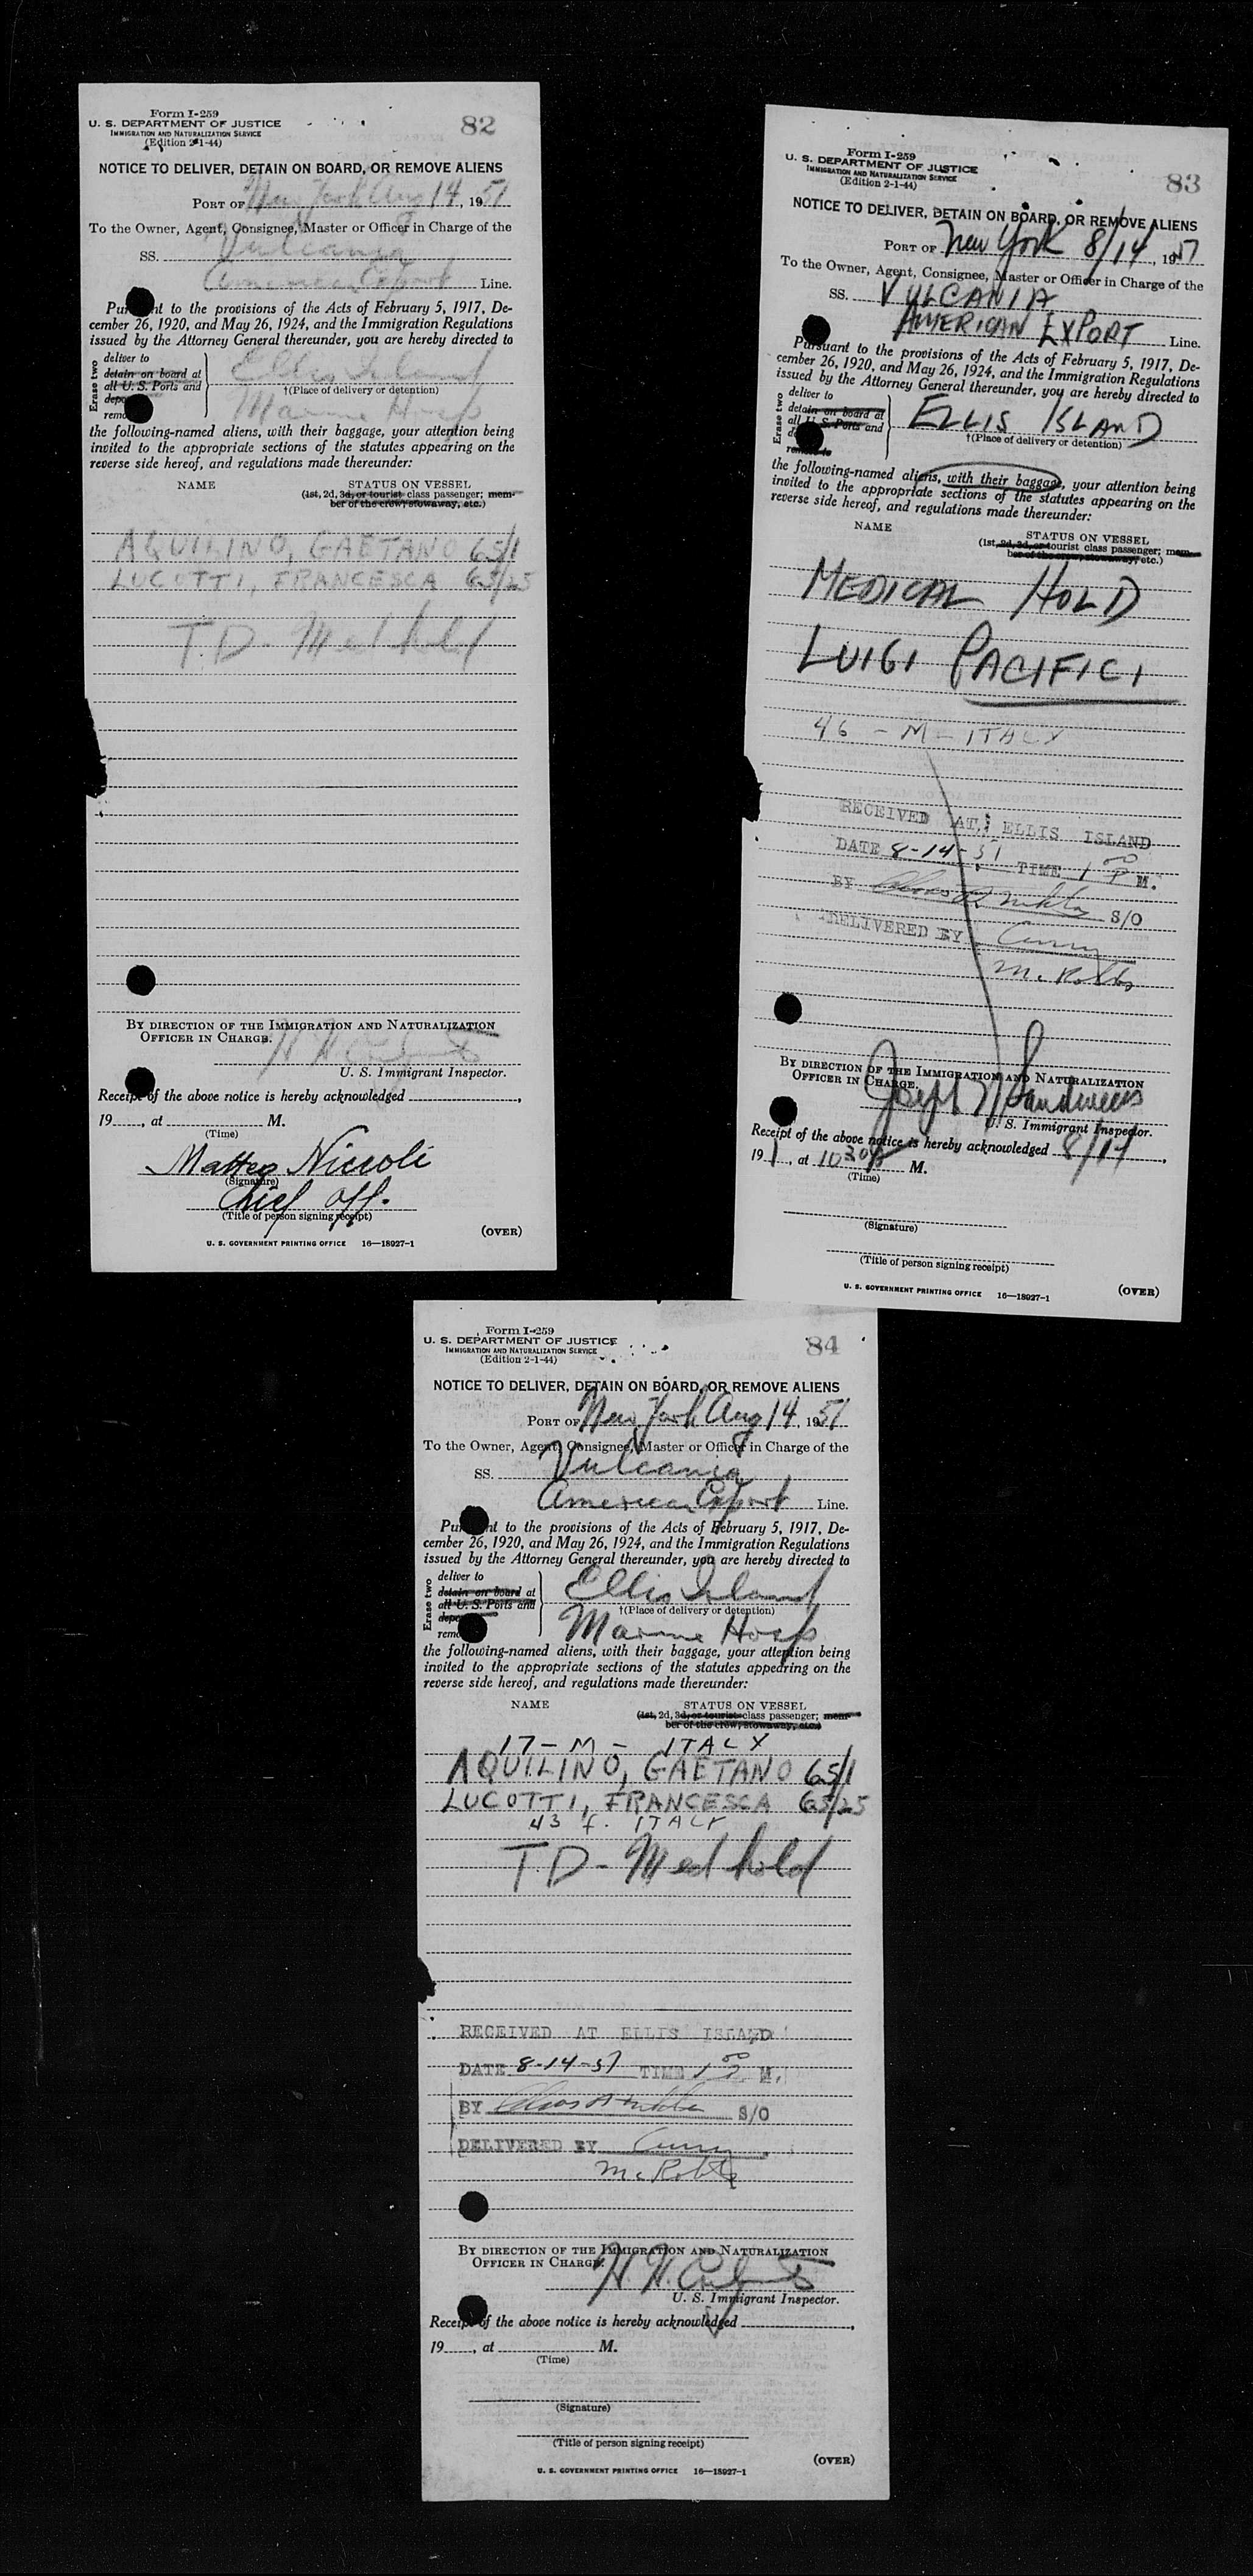 Form I-259
U. S. DEPARTMENT OF JUSTICE
IMMIGRATION AND NATURALIZATION SERVICE
(Edition 2-1-44)
82
NOTICE TO DELIVER, DETAIN ON BOARD, OR REMOVE ALIENS
PORT OF New York Aug 14, 1951
To the Owner, Agent, Consignee, Master or Officer in Charge of the
SS. Vulcania
American Export Line.
Pursuant to the provisions of the Acts of February 5, 1917, De-
cember 26, 1920, and May 26, 1924, and the Immigration Regulations
issued by the Attorney General thereunder, you are hereby directed to
Erase two
deliver to
detain on board at
all U. S. Ports and
Ellis Island
†(Place of delivery or detention)
Marine Hosp
the following-named aliens, with their baggage, your attention being
invited to the appropriate sections of the statutes appearing on the
reverse side hereof, and regulations made thereunder:
NAME
STATUS ON VESSEL
(1st, 2d, 3d, or tourist class passenger; mem-
ber of the crew, stowaway, etc.)
AQUILINO, GAETANO 65/1
LUCOTTI, FRANCESCA 65/25
T.D - Med hold
BY DIRECTION OF THE IMMIGRATION AND NATURALIZATION
OFFICER IN CHARGE.
U. S. Immigrant Inspector.
Receipt of the above notice is hereby acknowledged
19 , at M.
(Time)
Matteo Niccoli
(Signature)
Chief Off.
(Title of person signing receipt)
(OVER)
U. S. GOVERNMENT PRINTING OFFICE 16—18927-1
Form I-259
U. S. DEPARTMENT OF JUSTICE
IMMIGRATION AND NATURALIZATION SERVICE
(Edition 2-1-44)
83
NOTICE TO DELIVER, DETAIN ON BOARD, OR REMOVE ALIENS
PORT OF New York 8/14, 1951
To the Owner, Agent, Consignee, Master or Officer in Charge of the
SS. VULCANIA
AMERICAN EXPORT Line.
Pursuant to the provisions of the Acts of February 5, 1917, De-
cember 26, 1920, and May 26, 1924, and the Immigration Regulations
issued by the Attorney General thereunder, you are hereby directed to
Erase two
deliver to
detain on board at
all U. S. Ports and
remove to
ELLIS ISLAND
†(Place of delivery or detention)
the following-named aliens, with their baggage, your attention being
invited to the appropriate sections of the statutes appearing on the
reverse side hereof, and regulations made thereunder:
NAME
STATUS ON VESSEL
(1st, 2d, 3d, or tourist class passenger; mem-
ber of the crew, stowaway, etc.)
MEDICAL HOLD
LUIGI PACIFICI
46 - M - ITALY
RECEIVED AT ELLIS ISLAND
DATE 8-14-51 TIME 1 00 P M.
BY S/O
DELIVERED BY Curry
BY DIRECTION OF THE IMMIGRATION AND NATURALIZATION
OFFICER IN CHARGE.
Joseph
U. S. Immigrant Inspector.
Receipt of the above notice is hereby acknowledged 8/14,
19 1, at 10 30 A M.
(Time)
(Signature)
(Title of person signing receipt)
U. S. GOVERNMENT PRINTING OFFICE 16—18927-1
(OVER)
Form I-259
U. S. DEPARTMENT OF JUSTICE
IMMIGRATION AND NATURALIZATION SERVICE
(Edition 2-1-44)
84
NOTICE TO DELIVER, DETAIN ON BOARD, OR REMOVE ALIENS
PORT OF New York Aug 14, 1951
To the Owner, Agent, Consignee, Master or Officer in Charge of the
SS. Vulcania
American Export Line.
Pursuant to the provisions of the Acts of February 5, 1917, De-
cember 26, 1920, and May 26, 1924, and the Immigration Regulations
issued by the Attorney General thereunder, you are hereby directed to
Erase two
deliver to
detain on board at
all U. S. Ports and
Ellis Island
†(Place of delivery or detention)
Marine Hosp
the following-named aliens, with their baggage, your attention being
invited to the appropriate sections of the statutes appearing on the
reverse side hereof, and regulations made thereunder:
NAME
STATUS ON VESSEL
(1st, 2d, 3d, or tourist class passenger; mem-
ber of the crew, stowaway, etc.)
17 - M - ITALY
AQUILINO, GAETANO 65/1
LUCOTTI, FRANCESCA 65/25
43 f. ITALY
T.D - Med hold
RECEIVED AT ELLIS ISLAND
DATE 8-14-51 TIME 1 00 P M.
BY S/O
DELIVERED BY Curry
BY DIRECTION OF THE IMMIGRATION AND NATURALIZATION
OFFICER IN CHARGE.
U. S. Immigrant Inspector.
Receipt of the above notice is hereby acknowledged
19 , at M.
(Time)
(Signature)
(Title of person signing receipt)
(OVER)
U. S. GOVERNMENT PRINTING OFFICE 16—18927-1